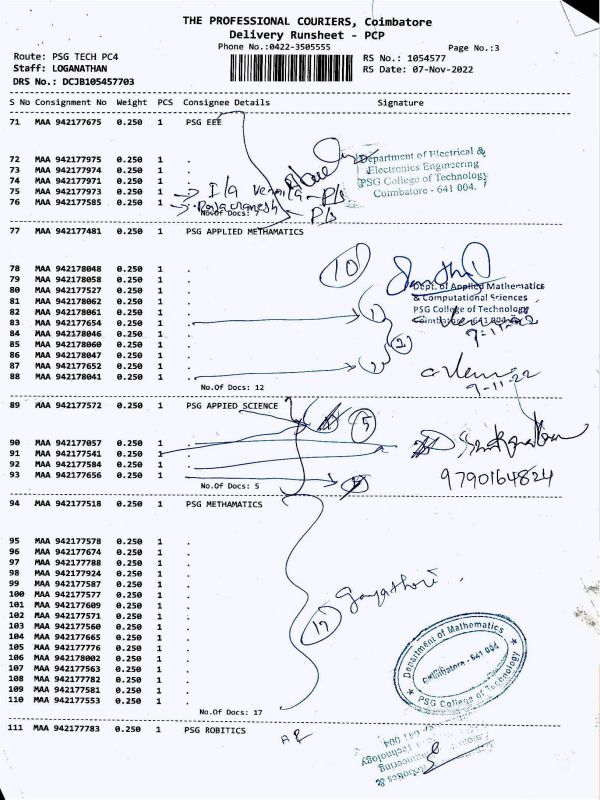 THE PROFESSIONAL COURIERS, Coimbatore
Delivery Runsheet - PCP
Phone No.:0422-3505555
Page No.:3
Route: PSG TECH PC4
RS No.: 1054577
Staff: LOGANATHAN
RS Date: 07-Nov-2022
DRS No.: DCJB105457703
S No Consignment No Weight PCS Consignee Details Signature
71 MAA 942177675 0.250 1 PSG EEE
72 MAA 942177975 0.250 1 .
73 MAA 942177974 0.250 1 .
74 MAA 942177971 0.250 1 .
75 MAA 942177973 0.250 1
76 MAA 942177585 0.250 1
No.Of Docs:
P/s
P/s
Department of Electrical &
Electronics Engineering
PSG College of Technology
Coimbatore - 641 004.
77 MAA 942177481 0.250 1 PSG APPLIED METHAMATICS
78 MAA 942178048 0.250 1 .
79 MAA 942178058 0.250 1 .
80 MAA 942177527 0.250 1 .
81 MAA 942178062 0.250 1 .
82 MAA 942178061 0.250 1 .
83 MAA 942177654 0.250 1 .
84 MAA 942178046 0.250 1 .
85 MAA 942178060 0.250 1 .
86 MAA 942178047 0.250 1 .
87 MAA 942177652 0.250 1 .
88 MAA 942178041 0.250 1 .
No.Of Docs: 12
10
1
2
2
Dept. of Applied Mathematics
& Computational Sciences
PSG College of Technology
Coimbatore-641 004
9-11-22
89 MAA 942177572 0.250 1 PSG APPIED SCIENCE
90 MAA 942177057 0.250 1 .
91 MAA 942177541 0.250 1 .
92 MAA 942177584 0.250 1 .
93 MAA 942177656 0.250 1 .
No.Of Docs: 5
5
9790164824
94 MAA 942177518 0.250 1 PSG METHAMATICS
95 MAA 942177578 0.250 1 .
96 MAA 942177674 0.250 1 .
97 MAA 942177788 0.250 1 .
98 MAA 942177924 0.250 1 .
99 MAA 942177587 0.250 1 .
100 MAA 942177577 0.250 1 .
101 MAA 942177609 0.250 1 .
102 MAA 942177571 0.250 1 .
103 MAA 942177560 0.250 1 .
104 MAA 942177665 0.250 1 .
105 MAA 942177776 0.250 1 .
106 MAA 942178002 0.250 1 .
107 MAA 942177563 0.250 1 .
108 MAA 942177782 0.250 1 .
109 MAA 942177581 0.250 1 .
110 MAA 942177553 0.250 1 .
No.Of Docs: 17
17
Gayathori
Department of Mathematics
Coimbatore - 641 004
PSG College of Technology
111 MAA 942177783 0.250 1 PSG ROBITICS